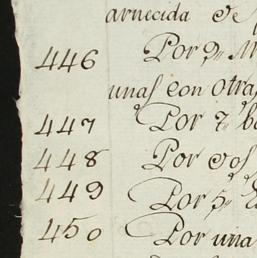 arnecida de
446 Por 9„
unas con otras
447 Por 7„
448 Por dos
449 Por 5„
450 Por una